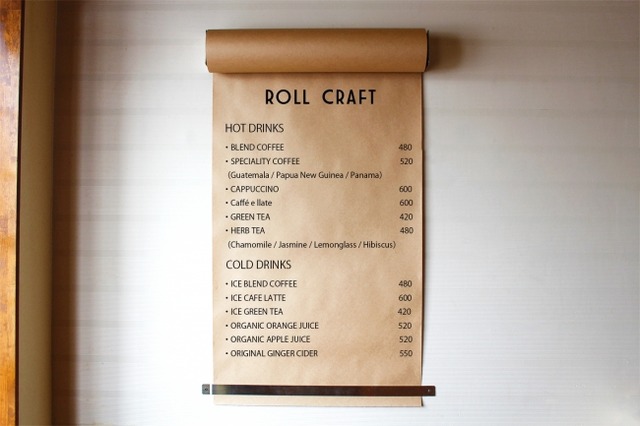 ROLL CRAFT
HOT DRINKS
• BLEND COFFEE 480
• SPECIALITY COFFEE 520
(Guatemala / Papua New Guinea / Panama)
• CAPPUCCINO 600
• Caffé e llate 600
• GREEN TEA 420
• HERB TEA 480
(Chamomile / Jasmine / Lemonglass / Hibiscus)
COLD DRINKS
• ICE BLEND COFFEE 480
• ICE CAFE LATTE 600
• ICE GREEN TEA 420
• ORGANIC ORANGE JUICE 520
• ORGANIC APPLE JUICE 520
• ORIGINAL GINGER CIDER 550